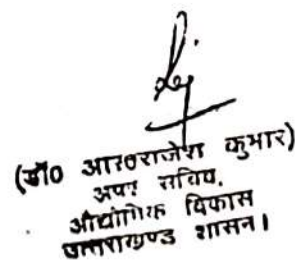 (डॉ० आर०राजेश कुमार)
अपर सचिव,
औद्योगिक विकास
उत्तराखण्ड शासन।